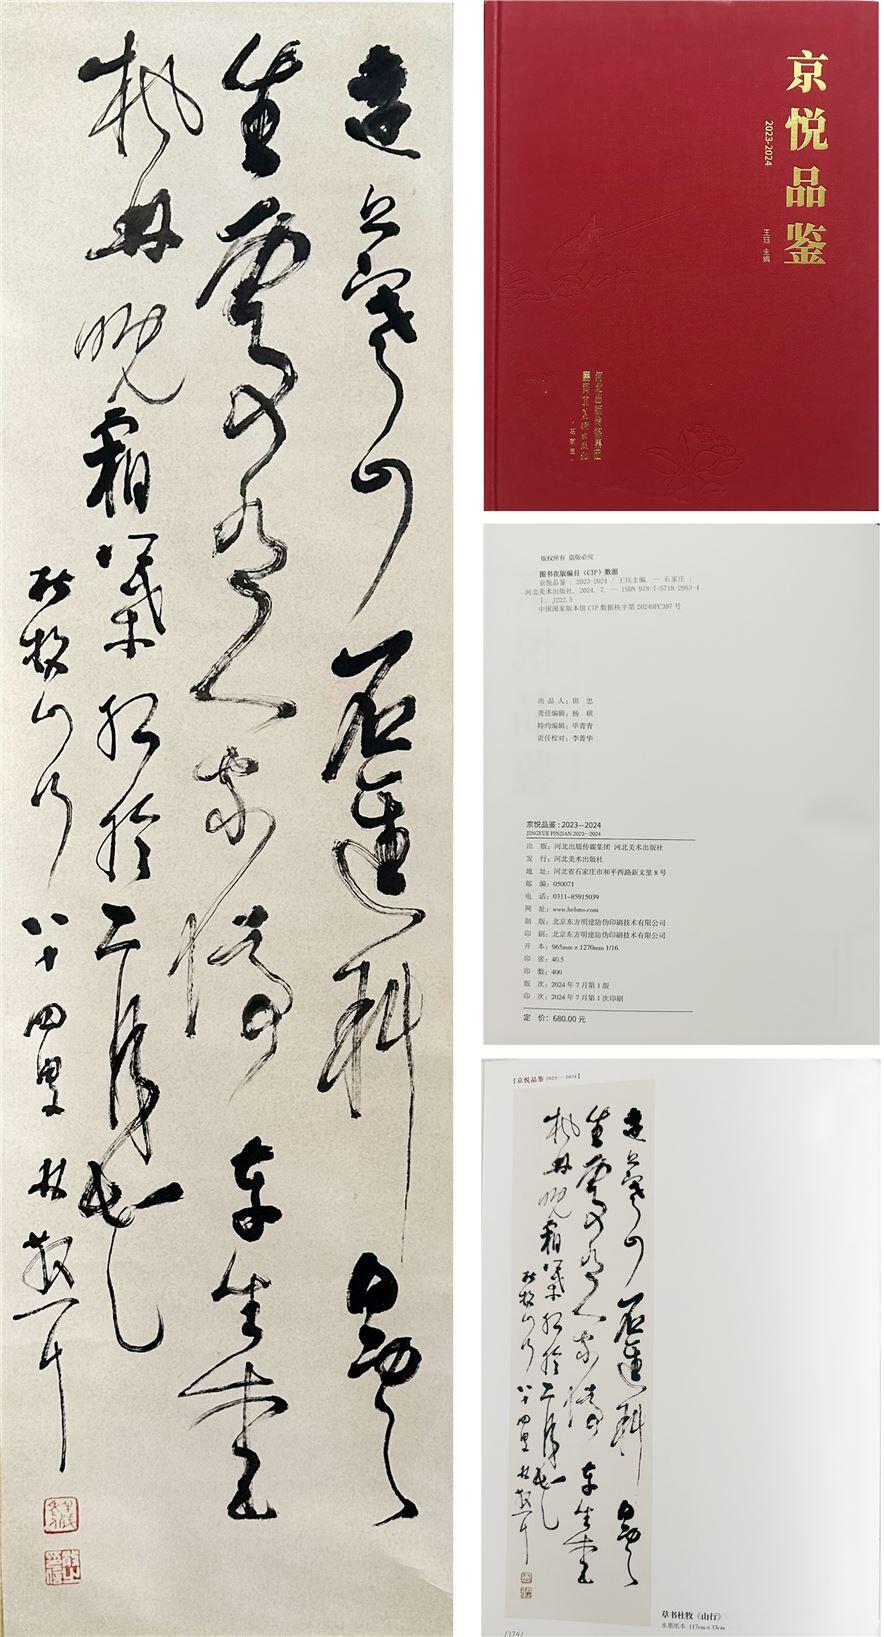 遠上寒山石徑斜白雲
生處有人家停車坐愛
枫林晚霜葉紅於二月花
杜牧山行 八十四叟林散耳
京悦品鉴
2023-2024
王珏 主编
河北出版传媒集团
河北美术出版社
·石家庄·
版权所有 盗版必究
图书在版编目（CIP）数据
京悦品鉴：2023-2024 / 王珏主编. — 石家庄：
河北美术出版社, 2024. 7. — ISBN 978-7-5718-2983-4
中国国家版本馆 CIP 数据核字第 20249PC397 号
出 品 人：田 忠
责任编辑：杨 硕
特约编辑：毕青青
责任校对：李菁华
京悦品鉴：2023—2024
JINGYUE PINJIAN 2023—2024
出 版：河北出版传媒集团 河北美术出版社
发 行：河北美术出版社
地 址：河北省石家庄市和平西路新文里 8 号
邮 编：050071
电 话：0311-85915039
网 址：www.hebms.com
制 版：北京东方明建防伪印刷技术有限公司
印 刷：北京东方明建防伪印刷技术有限公司
开 本：965mm×1270mm 1/16
印 张：40.5
印 数：400
版 次：2024 年 7 月第 1 版
印 次：2024 年 7 月第 1 次印刷
定 价：680.00 元
【京悦品鉴 2023—2024】
遠上寒山石徑斜白雲
生處有人家停車坐愛
枫林晚霜葉紅於二月花
杜牧山行 八十四叟林散耳
草书杜牧《山行》
水墨纸本 117cm×33cm
/174/